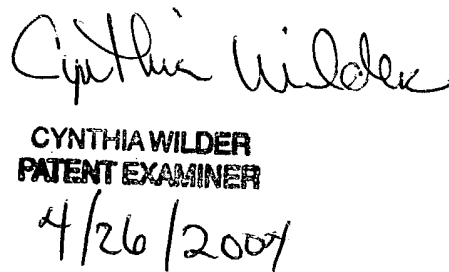 Cynthia Wilder
CYNTHIA WILDER
PATENT EXAMINER
4/26/2004